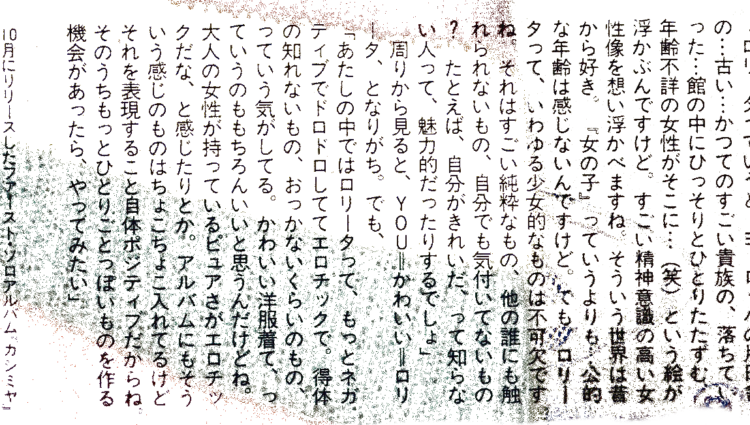 の…古い…かつてのすごい貴族の、落ちて
った…館の中にひっそりとひとりたたずむ
年齢不詳の女性がそこに…(笑)という絵が
浮かぶんですけど。すごい精神意識の高い女
性像を想い浮かべますね。そういう世界は昔
から好き。『女の子』っていうよりも…公的
な年齢は感じないんですけど。でもロリー
タって、いわゆる少女的なものは不可欠です
ね。それはすごい純粋なもの、他の誰にも触
れられないもの、自分でも気付いてないもの
? たとえば、自分がきれいだ、って知らな
い人って、魅力的だったりするでしょ」
周りから見ると、YOU=かわいい=ロリ
ータ、となりがち。でも、
「あたしの中ではロリータって、もっとネガ
ティブでドロドロしててエロチックで。得体
の知れないもの、おっかないくらいのもの、
っていう気がしてる。かわいい洋服着て、っ
ていうのももちろんいいと思うんだけどね。
大人の女性が持っているピュアさがエロチッ
クだな、と感じたりとか。アルバムにもそう
いう感じのものはちょこちょこ入れてるけど
それを表現すること自体ポジティブだからね
そのうちもっとひとりごとっぽいものを作る
機会があったら、やってみたい」
10月にリリースしたファースト・ソロアルバム『カシミヤ』